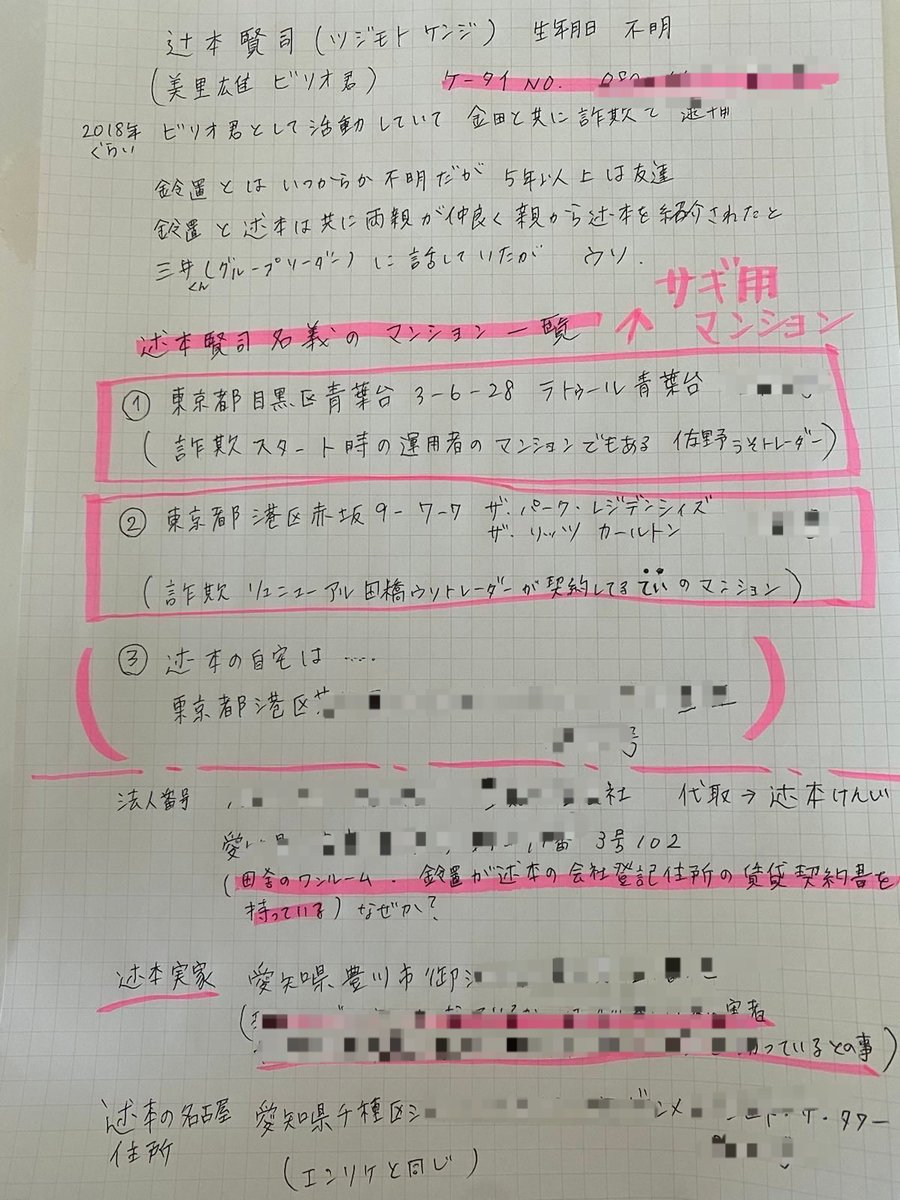 辻本賢司(ツジモトケンジ) 生年月日 不明
(美里広佳 ビリオ君) ケータイNO.
2018年ぐらい ビリオ君として活動していて 金田と共に詐欺で逮捕
鈴置とはいつからか不明だが 5年以上は友達
鈴置と辻本は共に両親が仲良く親から辻本を紹介されたと
三井くん(グループリーダー)に話していたが ウソ.
サギ用
辻本賢司名義のマンション一覧 ↑ マンション
① 東京都目黒区青葉台 3-6-28 ラトゥール青葉台
(詐欺スタート時の運用者のマンションでもある 佐野うそトレーダー)
② 東京都港区赤坂9-7-7 ザ・パーク・レジデンシィズ
ザ・リッツ カールトン
(詐欺 リニューアル 田橋ウソトレーダーが契約してるていのマンション)
③ 辻本の自宅は ....
東京都港区
号
法人番号 社 代取→辻本けんじ
3号102
(田舎のワンルーム. 鈴置が辻本の会社登記住所の賃貸契約書を
持っている) なぜか?
辻本実家 愛知県豊川市御
っているとの事)
辻本の名古屋 愛知県千種区
住所
(エンリケと同じ)